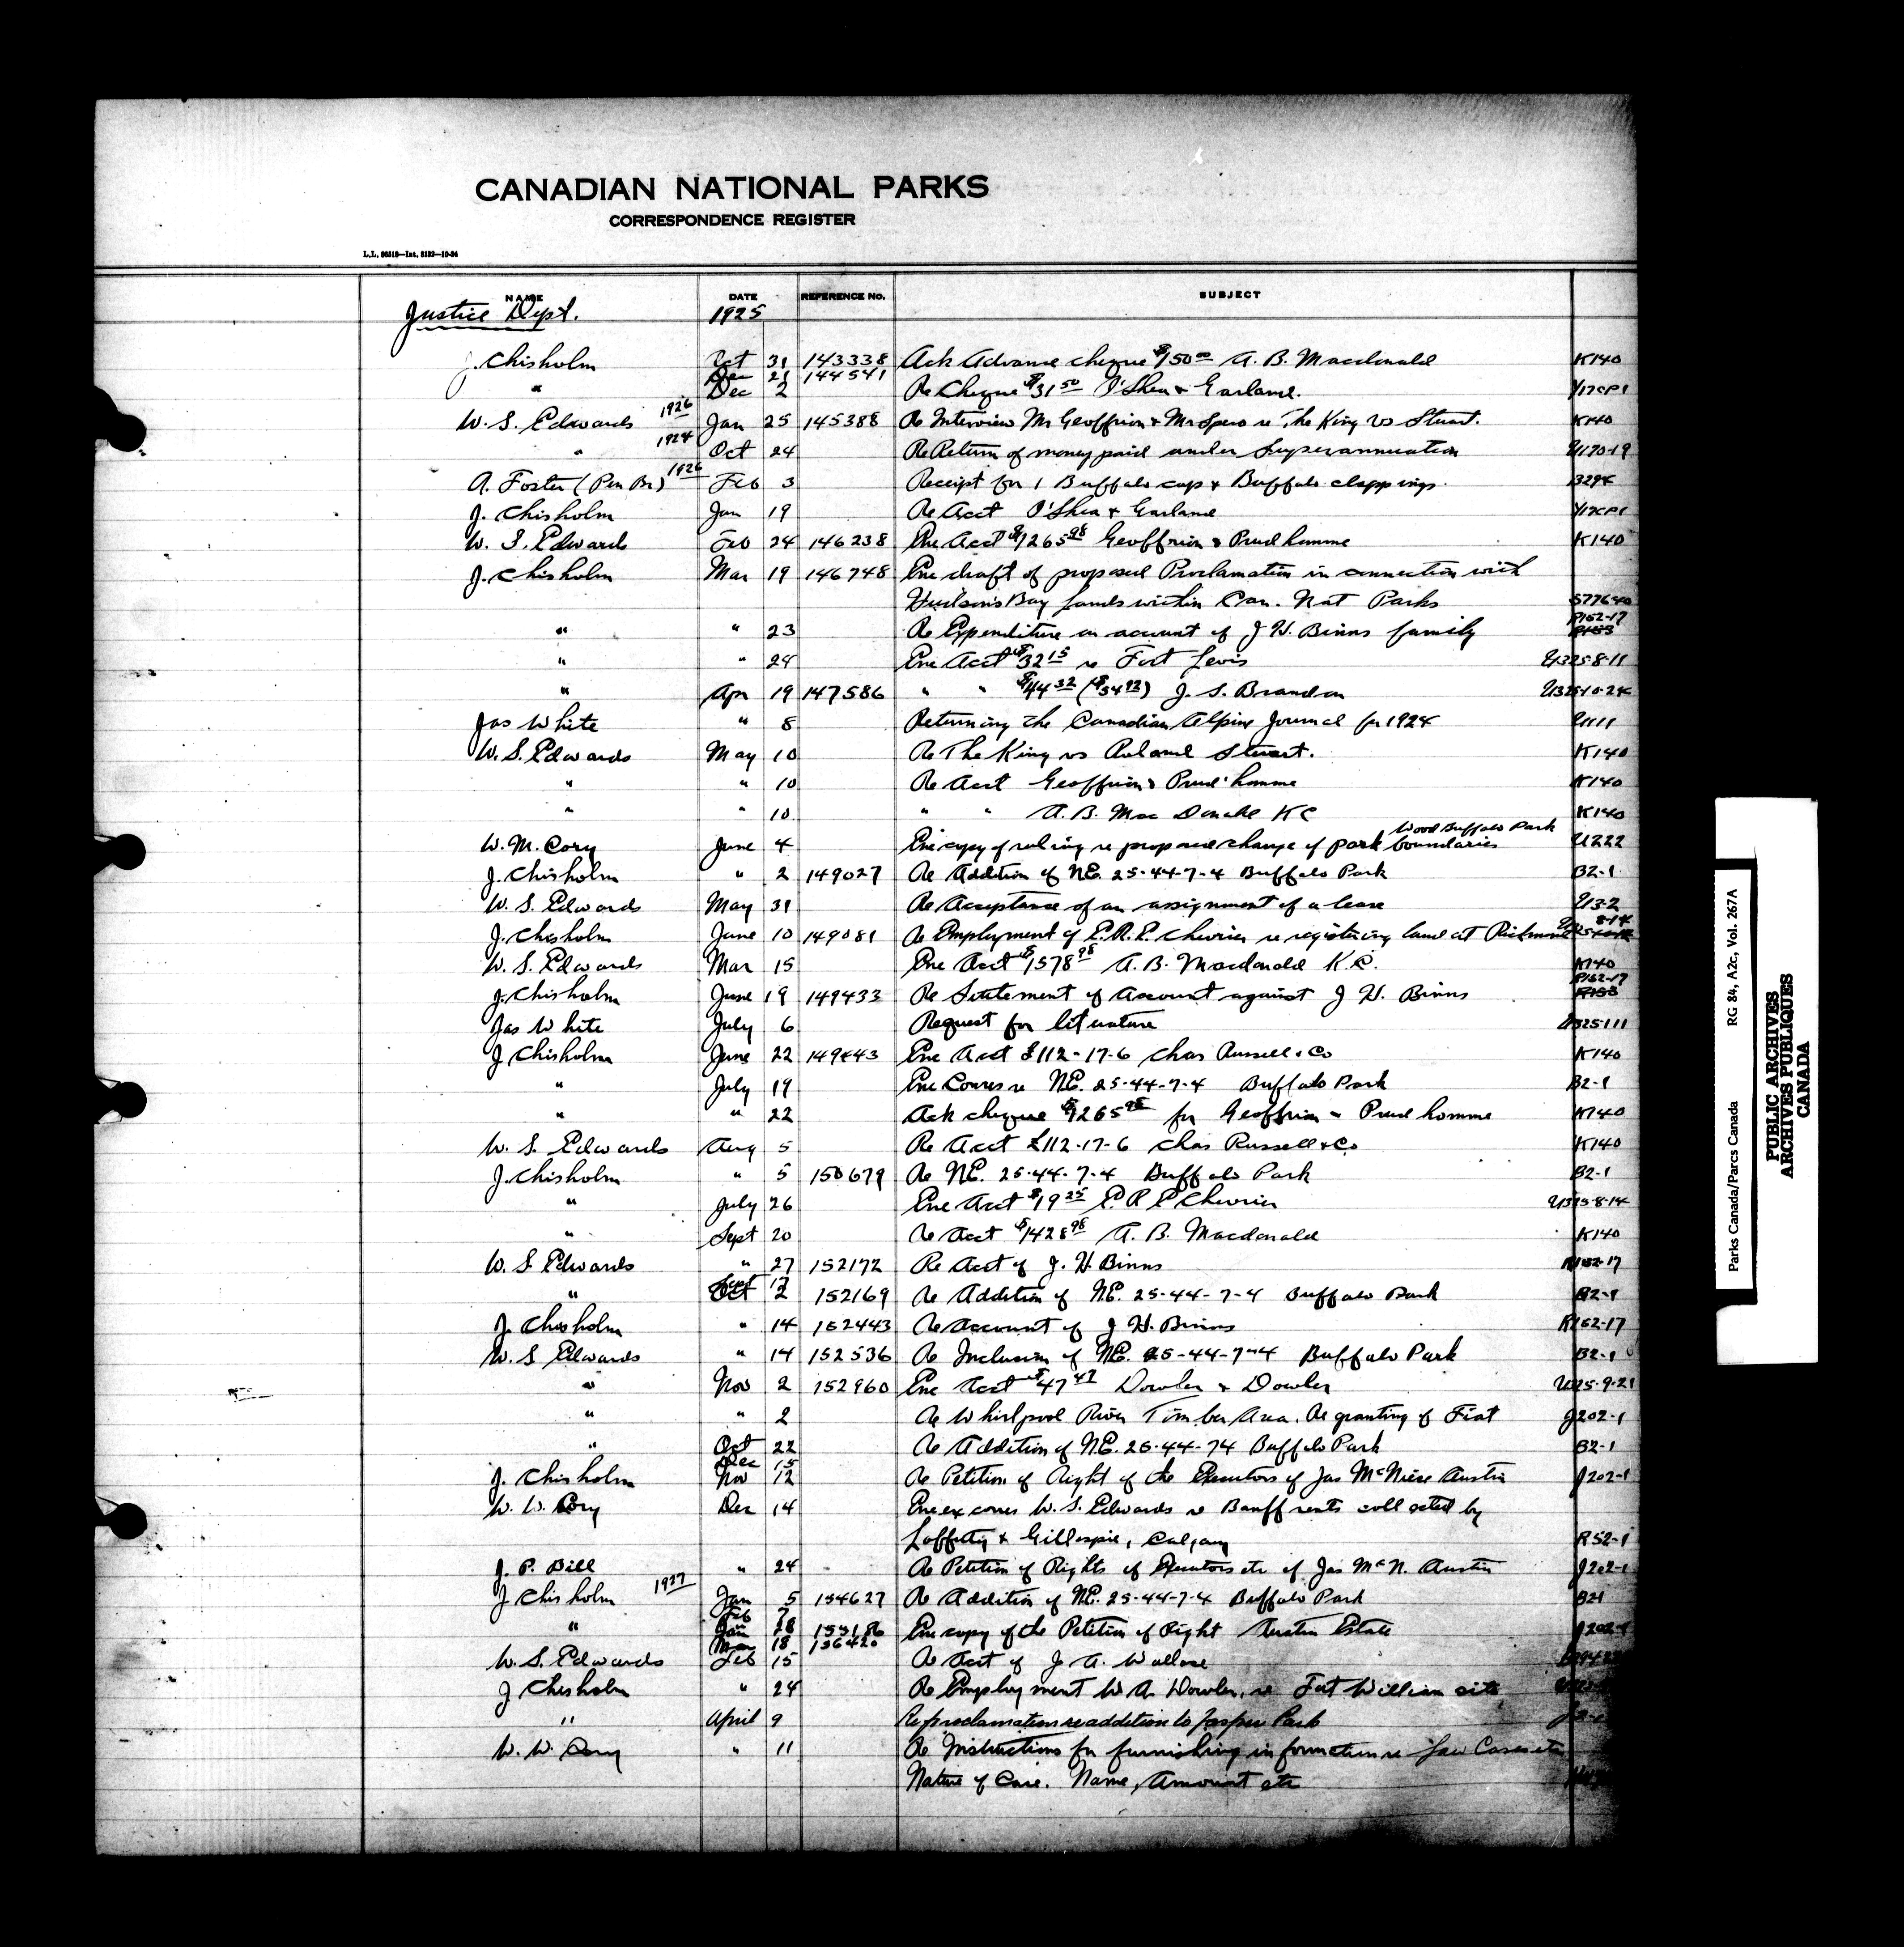 CANADIAN NATIONAL PARKS
CORRESPONDENCE REGISTER
L.L. 86518—Int. 8133—10-24
NAME DATE REFERENCE No. SUBJECT
Justice Dept. 1925
J. Chisholm Oct 31 143338 Ack Advance cheque $150 00 A. B. Macdonald K140
Dec 21 144541
" Dec 2 Re Cheque $31 50 O'Shea & Garland. Y17CP1
W. S. Edwards 1926 Jan 25 145388 Re Interview Mr Geoffrion & Mr Spero re The King vs Stuart. K140
" 1924 Oct 24 Re Return of money paid under Superannuation U170-19
A. Foster (Pen Br) 1926 Feb 3 Receipt for 1 Buffalo cap & Buffalo clippings. B294
J. Chisholm Jan 19 Re Acct O'Shea & Garland Y17CP1
W. S. Edwards Feb 24 146238 Enc Acct $1265 98 Geoffrion & Prudhomme K140
J. Chisholm Mar 19 146748 Enc draft of proposed Proclamation in connection with
Hudson's Bay lands within Can. Nat Parks
" " 23 Re Expenditure on account of J H. Binns family R152-17
" " 24 Enc Acct $32 15 re Fort Levis U325-8-11
" Apr 19 147586 " " $44 32 ($54 92) J. S. Brandon U325-10-24
Jas White " 8 Returning the Canadian Alpine Journal for 1924 U111
W. S. Edwards May 10 Re The King vs Roland Stuart. K140
" " 10 Re Acct Geoffrion & Prud'homme K140
" " 10 " " A. B. Mac Donald KC K140
Wood Buffalo Park
W. M. Cory June 4 Enc copy of ruling re proposed change of park boundaries U222
J. Chisholm " 2 149027 Re Addition of N.E. 25-44-7-4 Buffalo Park B2-1
W. S. Edwards May 31 Re Acceptance of an assignment of a lease U3-2
J. Chisholm June 10 149081 Re Employment of E. R. E. Chevrier re registering land at Richmond 8-14
W. S. Edwards Mar 15 Enc Acct $1578 98 A. B. Macdonald K.C. K140
J. Chisholm June 19 149433 Re Settlement of Account against J H. Binns R152-17
Jas White July 6 Request for literature U325-1-11
J Chisholm June 22 149443 Enc Acct £112-17-6 Chas Russell & Co K140
" July 19 Enc Corres re N.E. 25-44-7-4 Buffalo Park B2-1
" " 22 Ack cheque $1265 98 for Geoffrion & Prudhomme K140
W. S. Edwards Aug 5 Re Acct £112-17-6 Chas Russell & Co K140
J. Chisholm " 5 150679 Re N.E. 25-44-7-4 Buffalo Park B2-1
" July 26 Enc Acct $19 25 E. R E Chevrier U325-8-14
" Sept 20 Re Acct $1428 98 A. B. Macdonald K140
W. S. Edwards " 27 152172 Re Acct of J. H. Binns R152-17
Sept 17
" Oct 2 152169 Re Addition of N.E. 25-44-7-4 Buffalo Park B2-1
J. Chisholm " 14 152443 Re Account of J H. Binns R152-17
W. S Edwards " 14 152536 Re Inclusion of N.E. 25-44-7-4 Buffalo Park B2-1
" Nov 2 152960 Enc Acct $47 47 Dowler & Dowler U325-9-21
" " 2 Re Whirlpool River Timber Area. Re granting of Fiat J202-1
" Oct 22 Re Addition of N.E. 25-44-74 Buffalo Park B2-1
Dec 15
J. Chisholm Nov 12 Re Petition of Right of the Executors of Jas McNiece Austin J202-1
W. W. Cory Dec 14 Enc ex corres W. S. Edwards re Banff rents collected by
Lafferty & Gillespie, Calgary R52-1
J. P. Dill " 24 Re Petition of Rights of Executors etc of Jas McN. Austin J202-1
J Chisholm 1927 Jan 5 154627 Re Addition of N.E. 25-44-7-4 Buffalo Park B21
Feb 7
" Jan 28 155186 Enc copy of the Petition of Right Austin Estate J202-1
Mar 18 156420
W. S. Edwards Feb 15 Re Acct of J. A. Wallace
J Chisholm " 24 Re Employment W. A. Dowler, re Fort William site
" April 9 Re proclamation re addition to Jasper Park
W. W. Cory " 11 Re Instructions for furnishing information re Law Cases etc
Nature of Case. Name, Amount etc
Parks Canada/Parcs Canada RG 84, A2c, Vol. 267A
PUBLIC ARCHIVES
ARCHIVES PUBLIQUES
CANADA